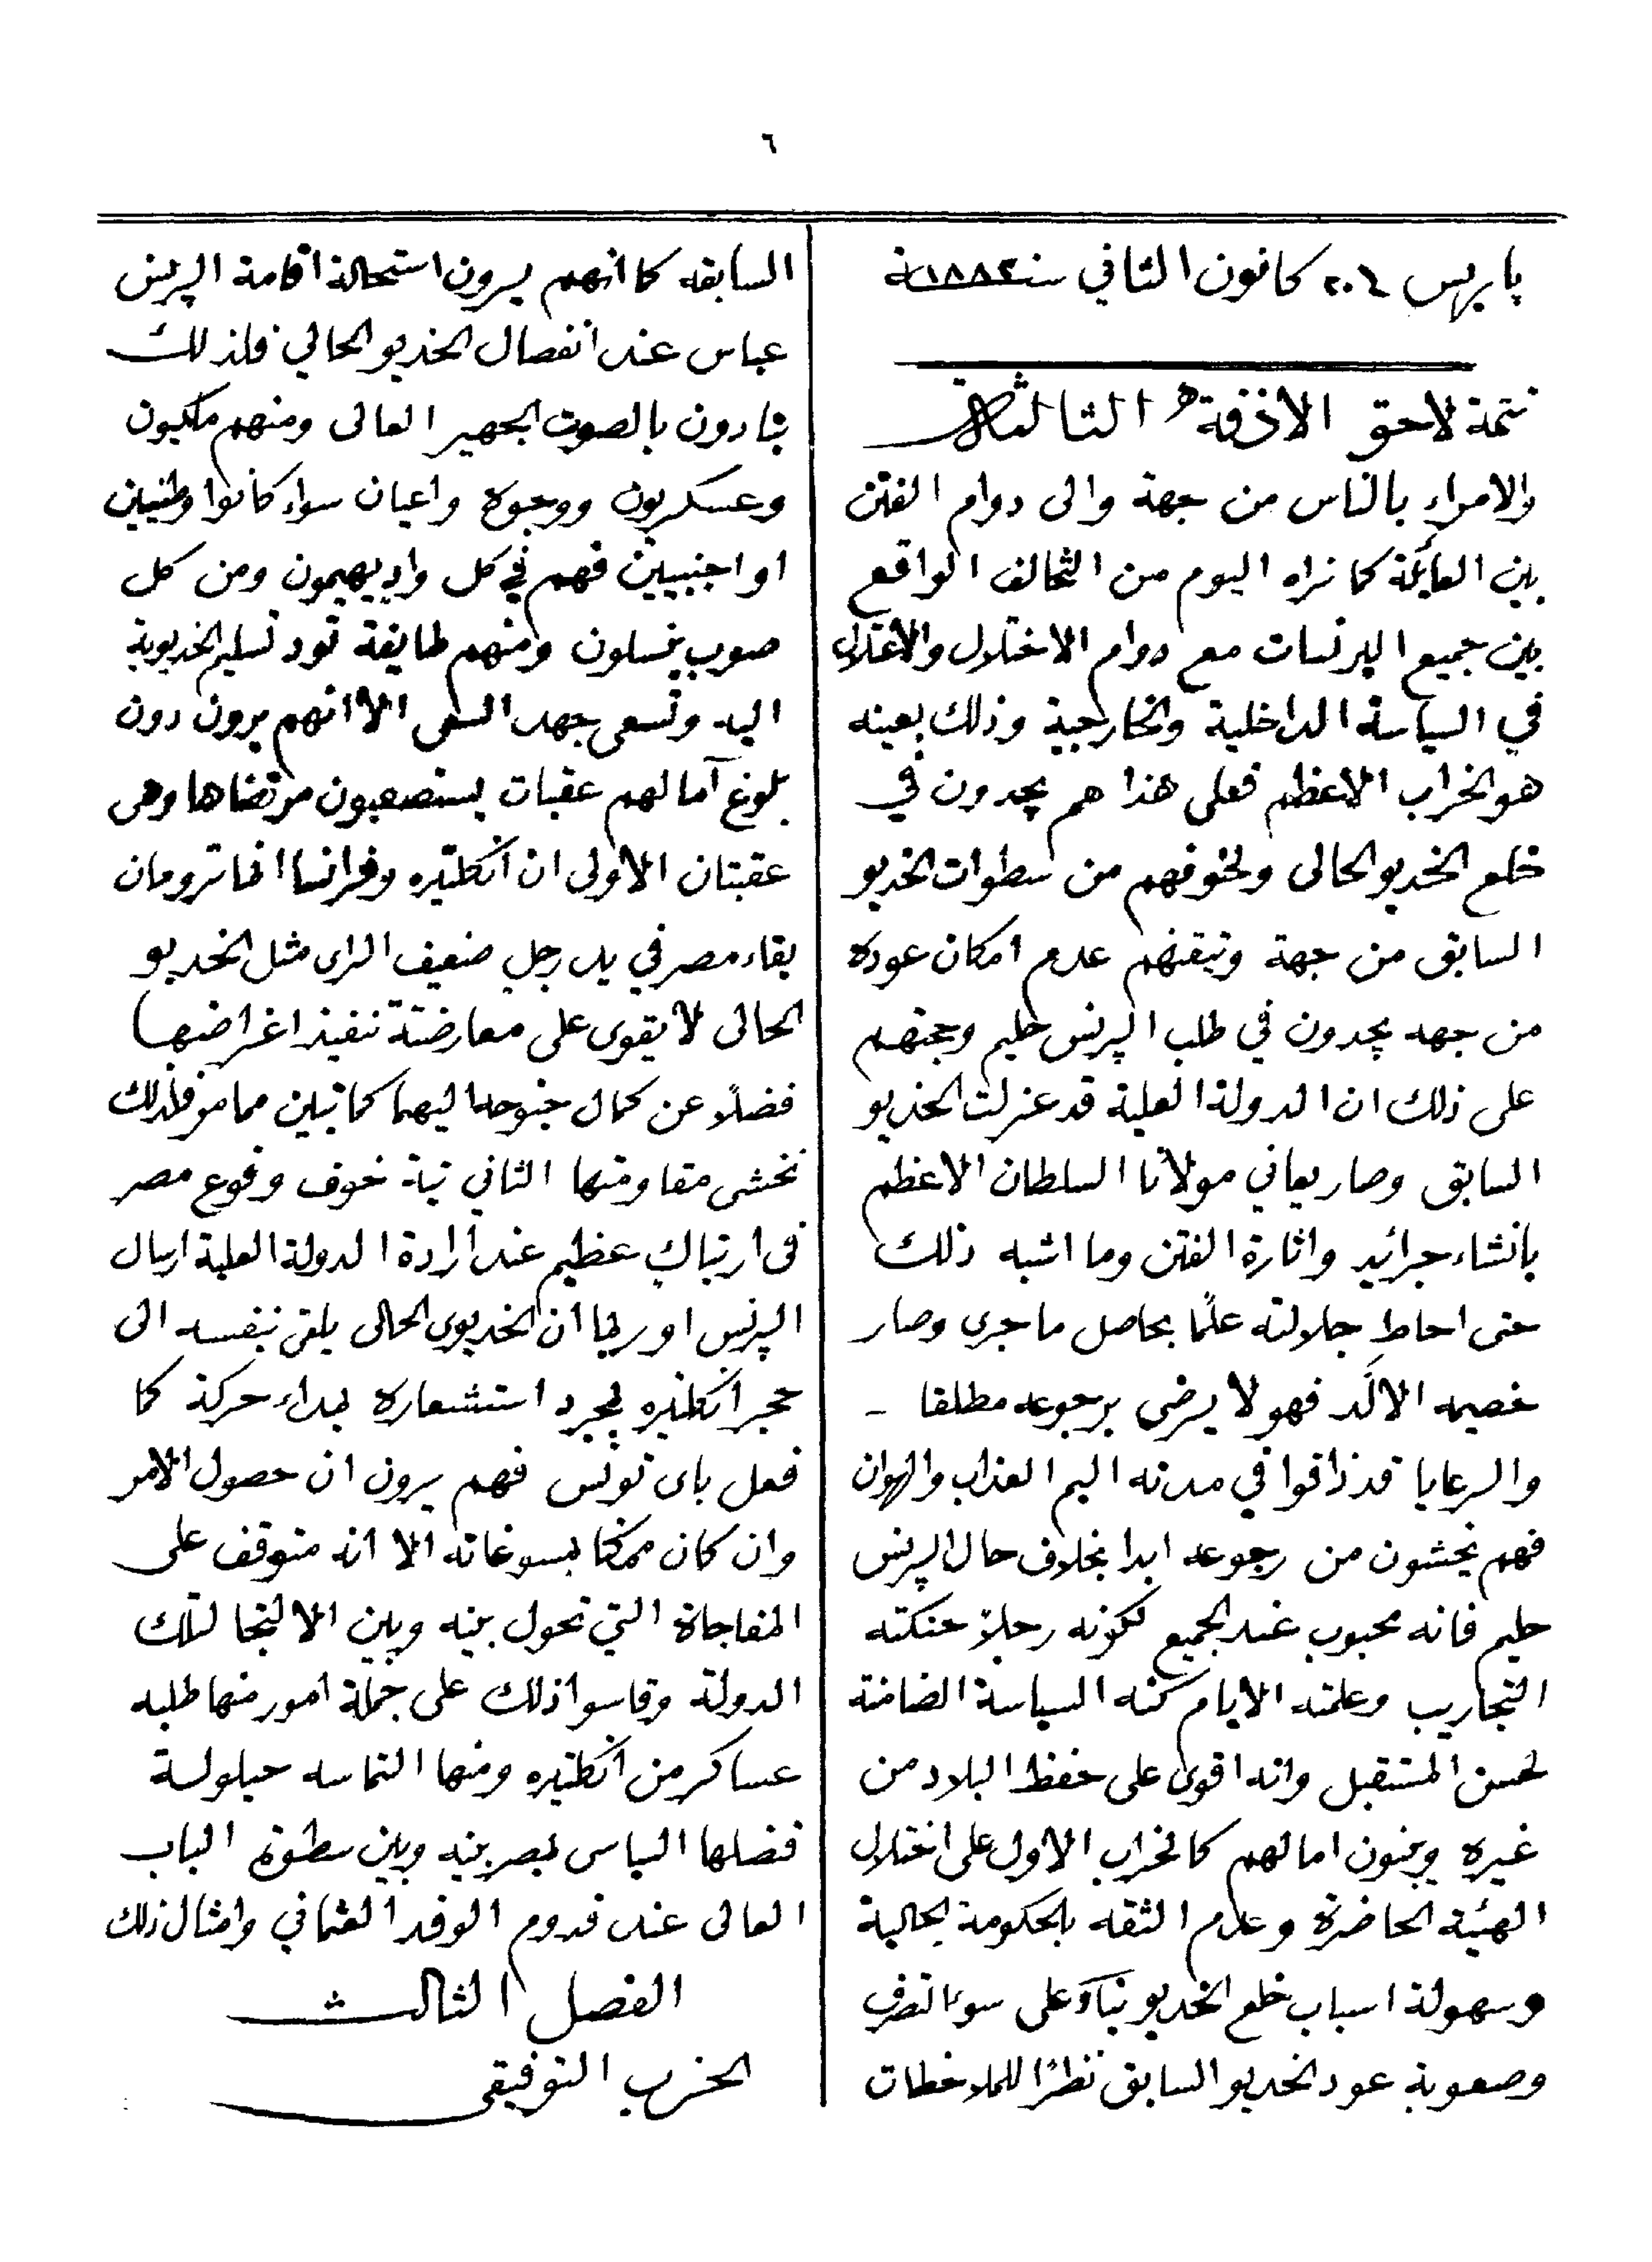 ٦
پاريس ٢٠٤ كانون الثاني سنة ١٨٨٣
تتمة لاحق الازفة الثالثة
والامراء بالناس من جهة والى دوام الفتن
بين العايلة كما نراه اليوم من التحالف الواقع
بين جميع البرنسات مع دوام الاختلال والاعتلال
في السياسة الداخلية والخارجية وذلك بعينه
هو الخراب الاعظم فعلى هذا هم يجدون في
خلع الخديو الحالى ولخوفهم من سطوات الخديو
السابق من جهة وتيقنهم عدم امكان عوده
من جهه يجدون في طلب البرنس حليم وحجتهم
على ذلك ان الدولة العلية قد عزلت الخديو
السابق وصار يعاني مولانا السلطان الاعظم
بانشاء جرائد واثارة الفتن وما اشبه ذلك
حتى احاط جلالته علمًا بحاصل ما جرى وصار
خصيمه الالَد فهو لا يرضى برجوعه مطلقا -
والرعايا قد ذاقوا في مدته اليم العذاب والهوان
فهم يخشون من رجوعه ابدا بخلاف حال البرنس
حليم فانه محبوب عند الجميع لكونه رجلاً حنكته
التجاريب وعلمته الايام كنه السياسة الضامنة
لحسن المستقبل وانه اقوى على حفظ البلاد من
غيره ويبنون امالهم كالخراب الاول على اختلال
الهيئة الحاضرة وعدم الثقه بالحكومة الحالية
وسهولة اسباب خلع الخديو بناءً على سوء التصرف
وصعوبة عود الخديو السابق نظرًا للملاحظات
السابقه كما انهم يرون استحالة اقامة البرنس
عباس عند انفصال الخديو الحالي فلذلك
ينادون بالصوت الجهير العالى ومنهم ملكيون
وعسكريون ووجوه واعيان سواء كانوا وطنيين
او اجنبيين فهم في كل وادٍ يهيمون ومن كل
صوب ينسلون ومنهم طايفة تود تسليم الخديوية
اليه وتسعى جهد السعى الا انهم يرون دون
بلوغ آمالهم عقبات يستصعبون مرتضاها وهى
عقبتان الاولى ان انكلتيره وفرانسا انما ترومان
بقاء مصر في يد رجل ضعيف الراى مثل الخديو
الحالى لا يقوى على معارضته تنفيذ اغراضها
فضلاً عن كمال جنوحه اليهما كما تبين مما مر فلذلك
تخشى مقاومتها الثاني نية خوف وقوع مصر
فى ارتباكٍ عظيم عند ارادة الدولة العلية ارسال
البرنس اوربما ان الخديوى الحالى يلقى بنفسه الى
حجر انكلتيره لمجرد استشعاره بمبداء حركة كما
فعل باى تونس فهم يرون ان حصول الامر
وان كان ممكنا بمسوغاته الا انه متوقف على
المفاجاة التي تحول بينه وبين الالتجا لتلك
الدولة وقاسوا ذلك على جملة امور منها طلبه
عساكر من انكلتيره ومنها التماسه حيلولة
قنصلها السياسى بمصر بينه وبين سطوة الباب
العالى عند قدوم الوفد العثماني وامثال ذلك
الفصل الثالث
الحزب التوفيقى